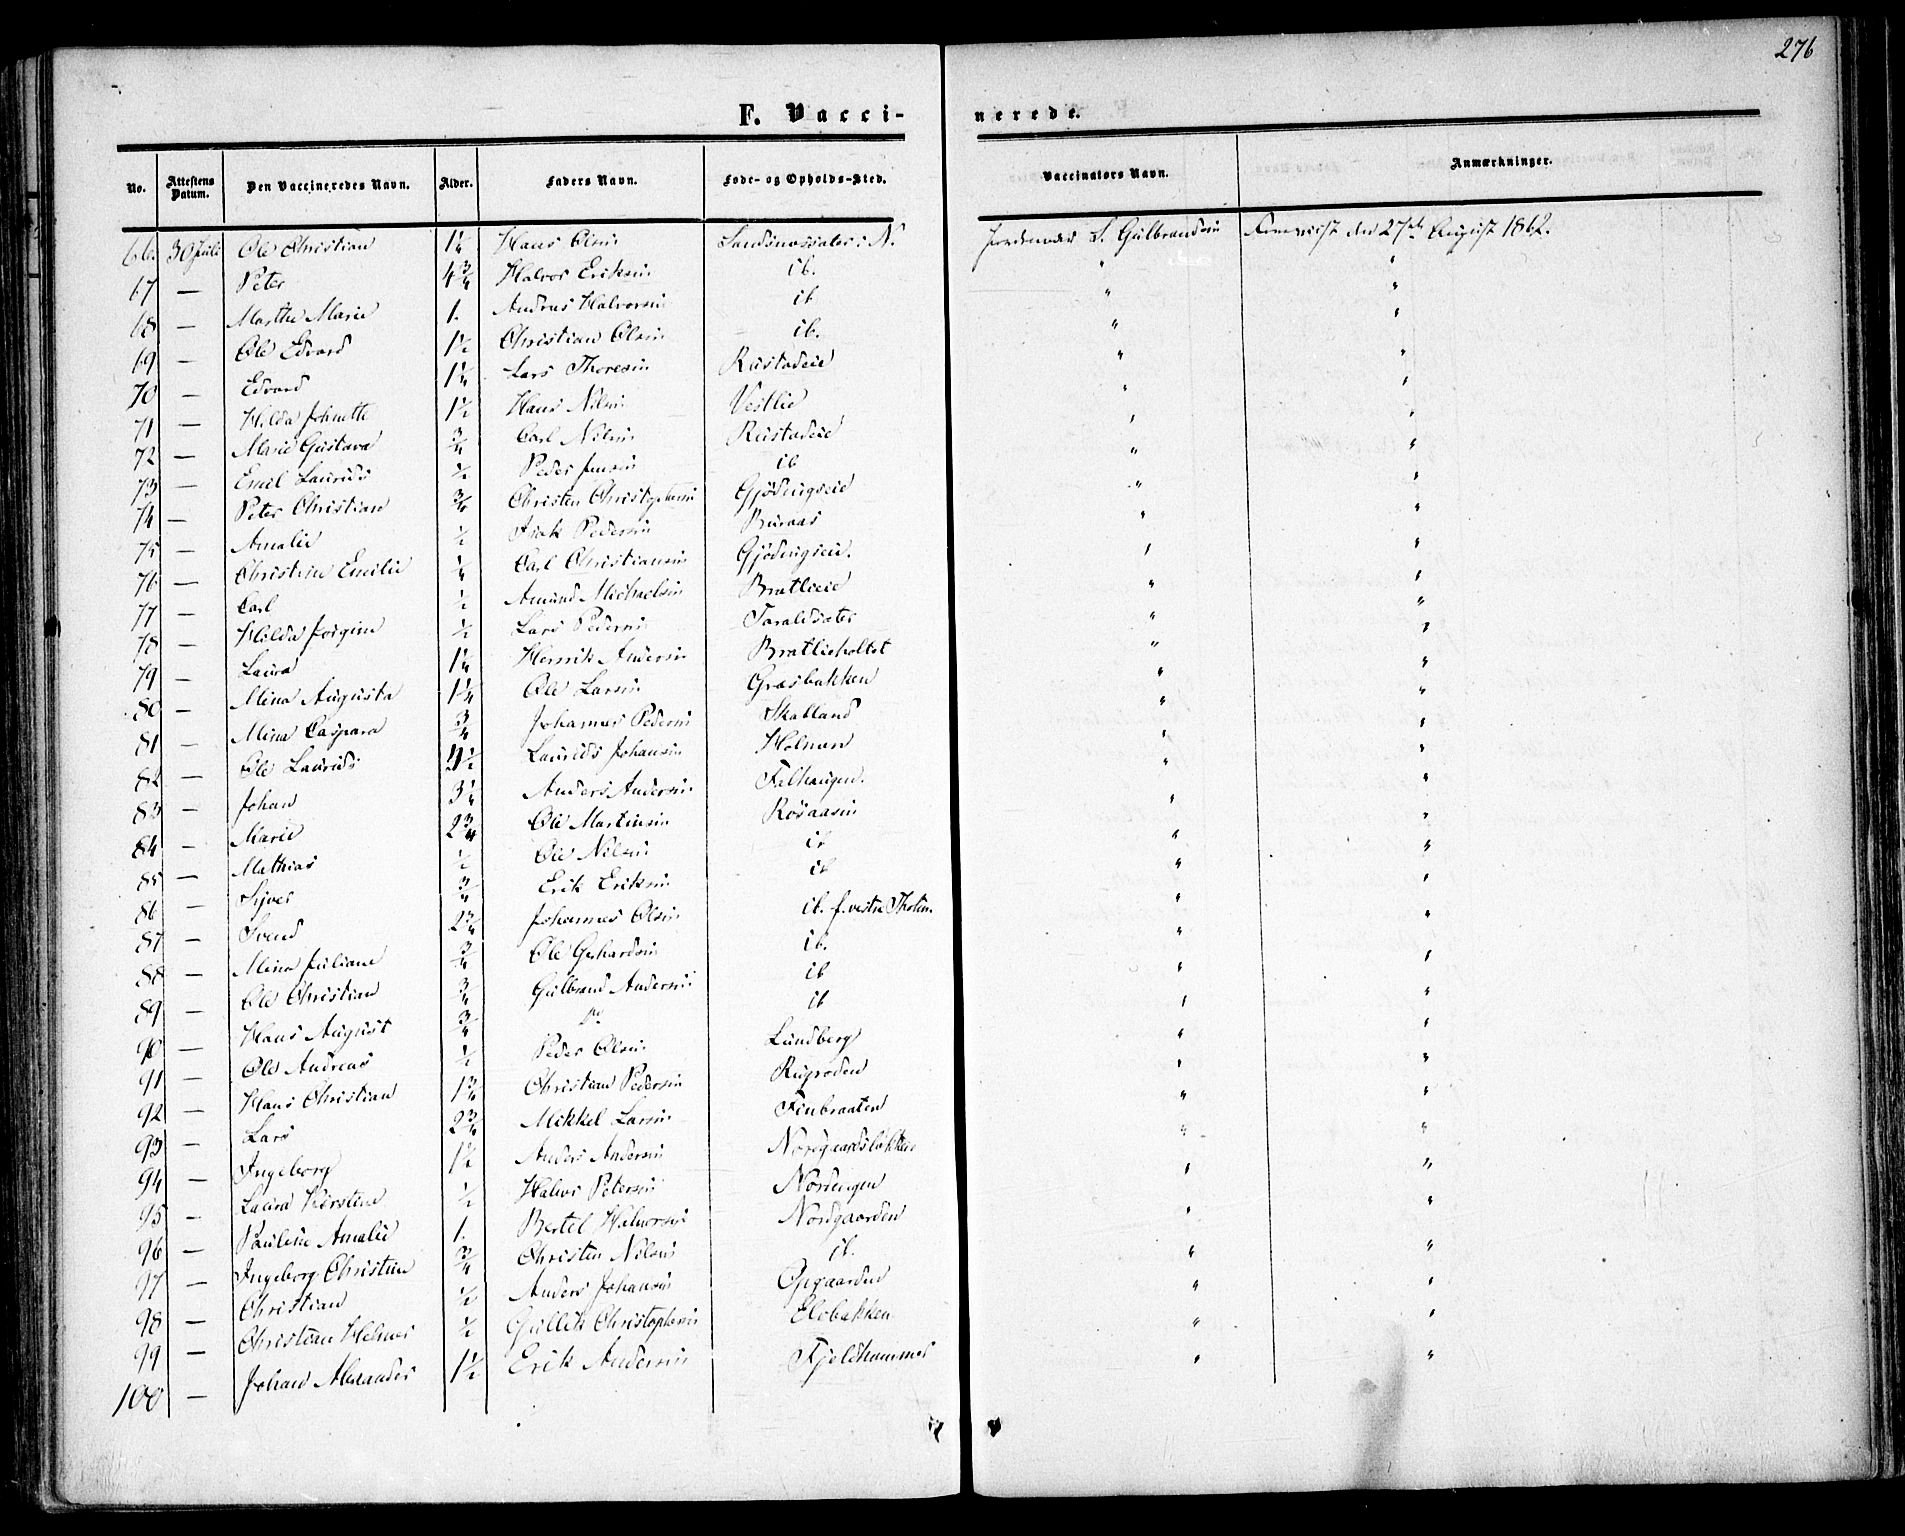 276
F. Vacci-
nerede.
No. Attestens Datum. Den Vaccineredes Navn. Alder. Faders Navn. Føde- og Opholds-Sted. Vaccinators Navn. Anmærkninger.
66. 30 Juli Ole Christian 1¼ Hans Olsen i N. S. Gulbrandsen den 27de August 1862.
67 — Peter 4¾ Halvor Eriksen ib. " "
68 — Marthe Marie 1. Andreas Halvorsen ib " "
69 — Ole Edvard 1½ Christian Olsen ib. " "
70 — Edvard 1¼ Lars Thoresen Rustadeie " "
71 — Hilda Johnette 1½ Hans Nilsen Vestlie " "
72 — Marie Gustava ¾ Carl Nilsen Rustadeie " "
73 — Emil Laurids ½ Peder Jensen ib " "
74 — Peter Christian ¾ Christen Christophersen Gjødingseie " "
75 — Amalie ½ Isak Pedersen Buraas " "
76 — Christine Emilie ¼ Carl Christiansen Gjødingseie. " "
77 — Carl ½ Amund Michaelsen Bratlieeie " "
78 — Hilda Jørgine ½ Lars Pedersen Taraldsæter " "
79 — Laura 1¼ Henrik Andersen Bratlieholtet " "
80 — Mina Augusta 1¼ Ole Larsen Græsbakken " "
81 — Mina Caspara ¾ Johannes Pedersen Skalland " "
82 — Ole Laurids Laurids Johansen Holmen " "
83 — Johan 3¼ Anders Andersen Falhaugen. " "
84 — Marie 2¾ Ole Martinsen Røsaasen " "
85 — Mathias ½ Ole Nilsen ib " "
86 — Syver ¾ Erik Eriksen ib " "
87 — Svend 2¾ Johannes Olsen ib. f. vestre Thoten. " "
88 — Mina Juliane ¾ Ole Gerhardsen ib. " "
89 — Ole Christian ¾ Gulbrand Andersen ib " "
90 — Hans August ¾ Do ib " "
91 — Ole Andreas ½ Peder Olsen Lundberg " "
92 — Hans Christian 1¾ Christian Pedersen Rugroden " "
93 — Lars 2¾ Mikkel Larsen Finbraaten " "
94 — Ingeborg 1½ Anders Andersen Nordgaardsløkken " "
95 — Laura Kirstine ½ Halvor Petersen Nordengen " "
96 — Pauline Amalie 1. Bertel Halvorsen Nordgaarden " "
97 — Ingeborg Christine ¾ Christen Nilsen ib. " "
98 — Christian ½ Anders Johansen Opgaarden " "
99 — Christian Helmer ½ Gullik Christophersen Elvbakken " "
100 — Johan Alexander 1½ Erik Andersen Fjeldhammer " "